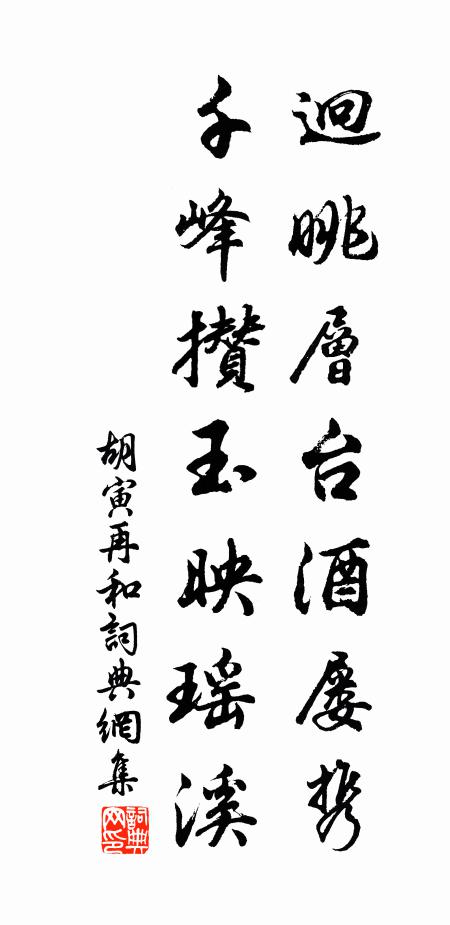 迥眺層台酒屢携
千峰攅玉映瑶溪
胡寅再和詞典網集
詞典网印